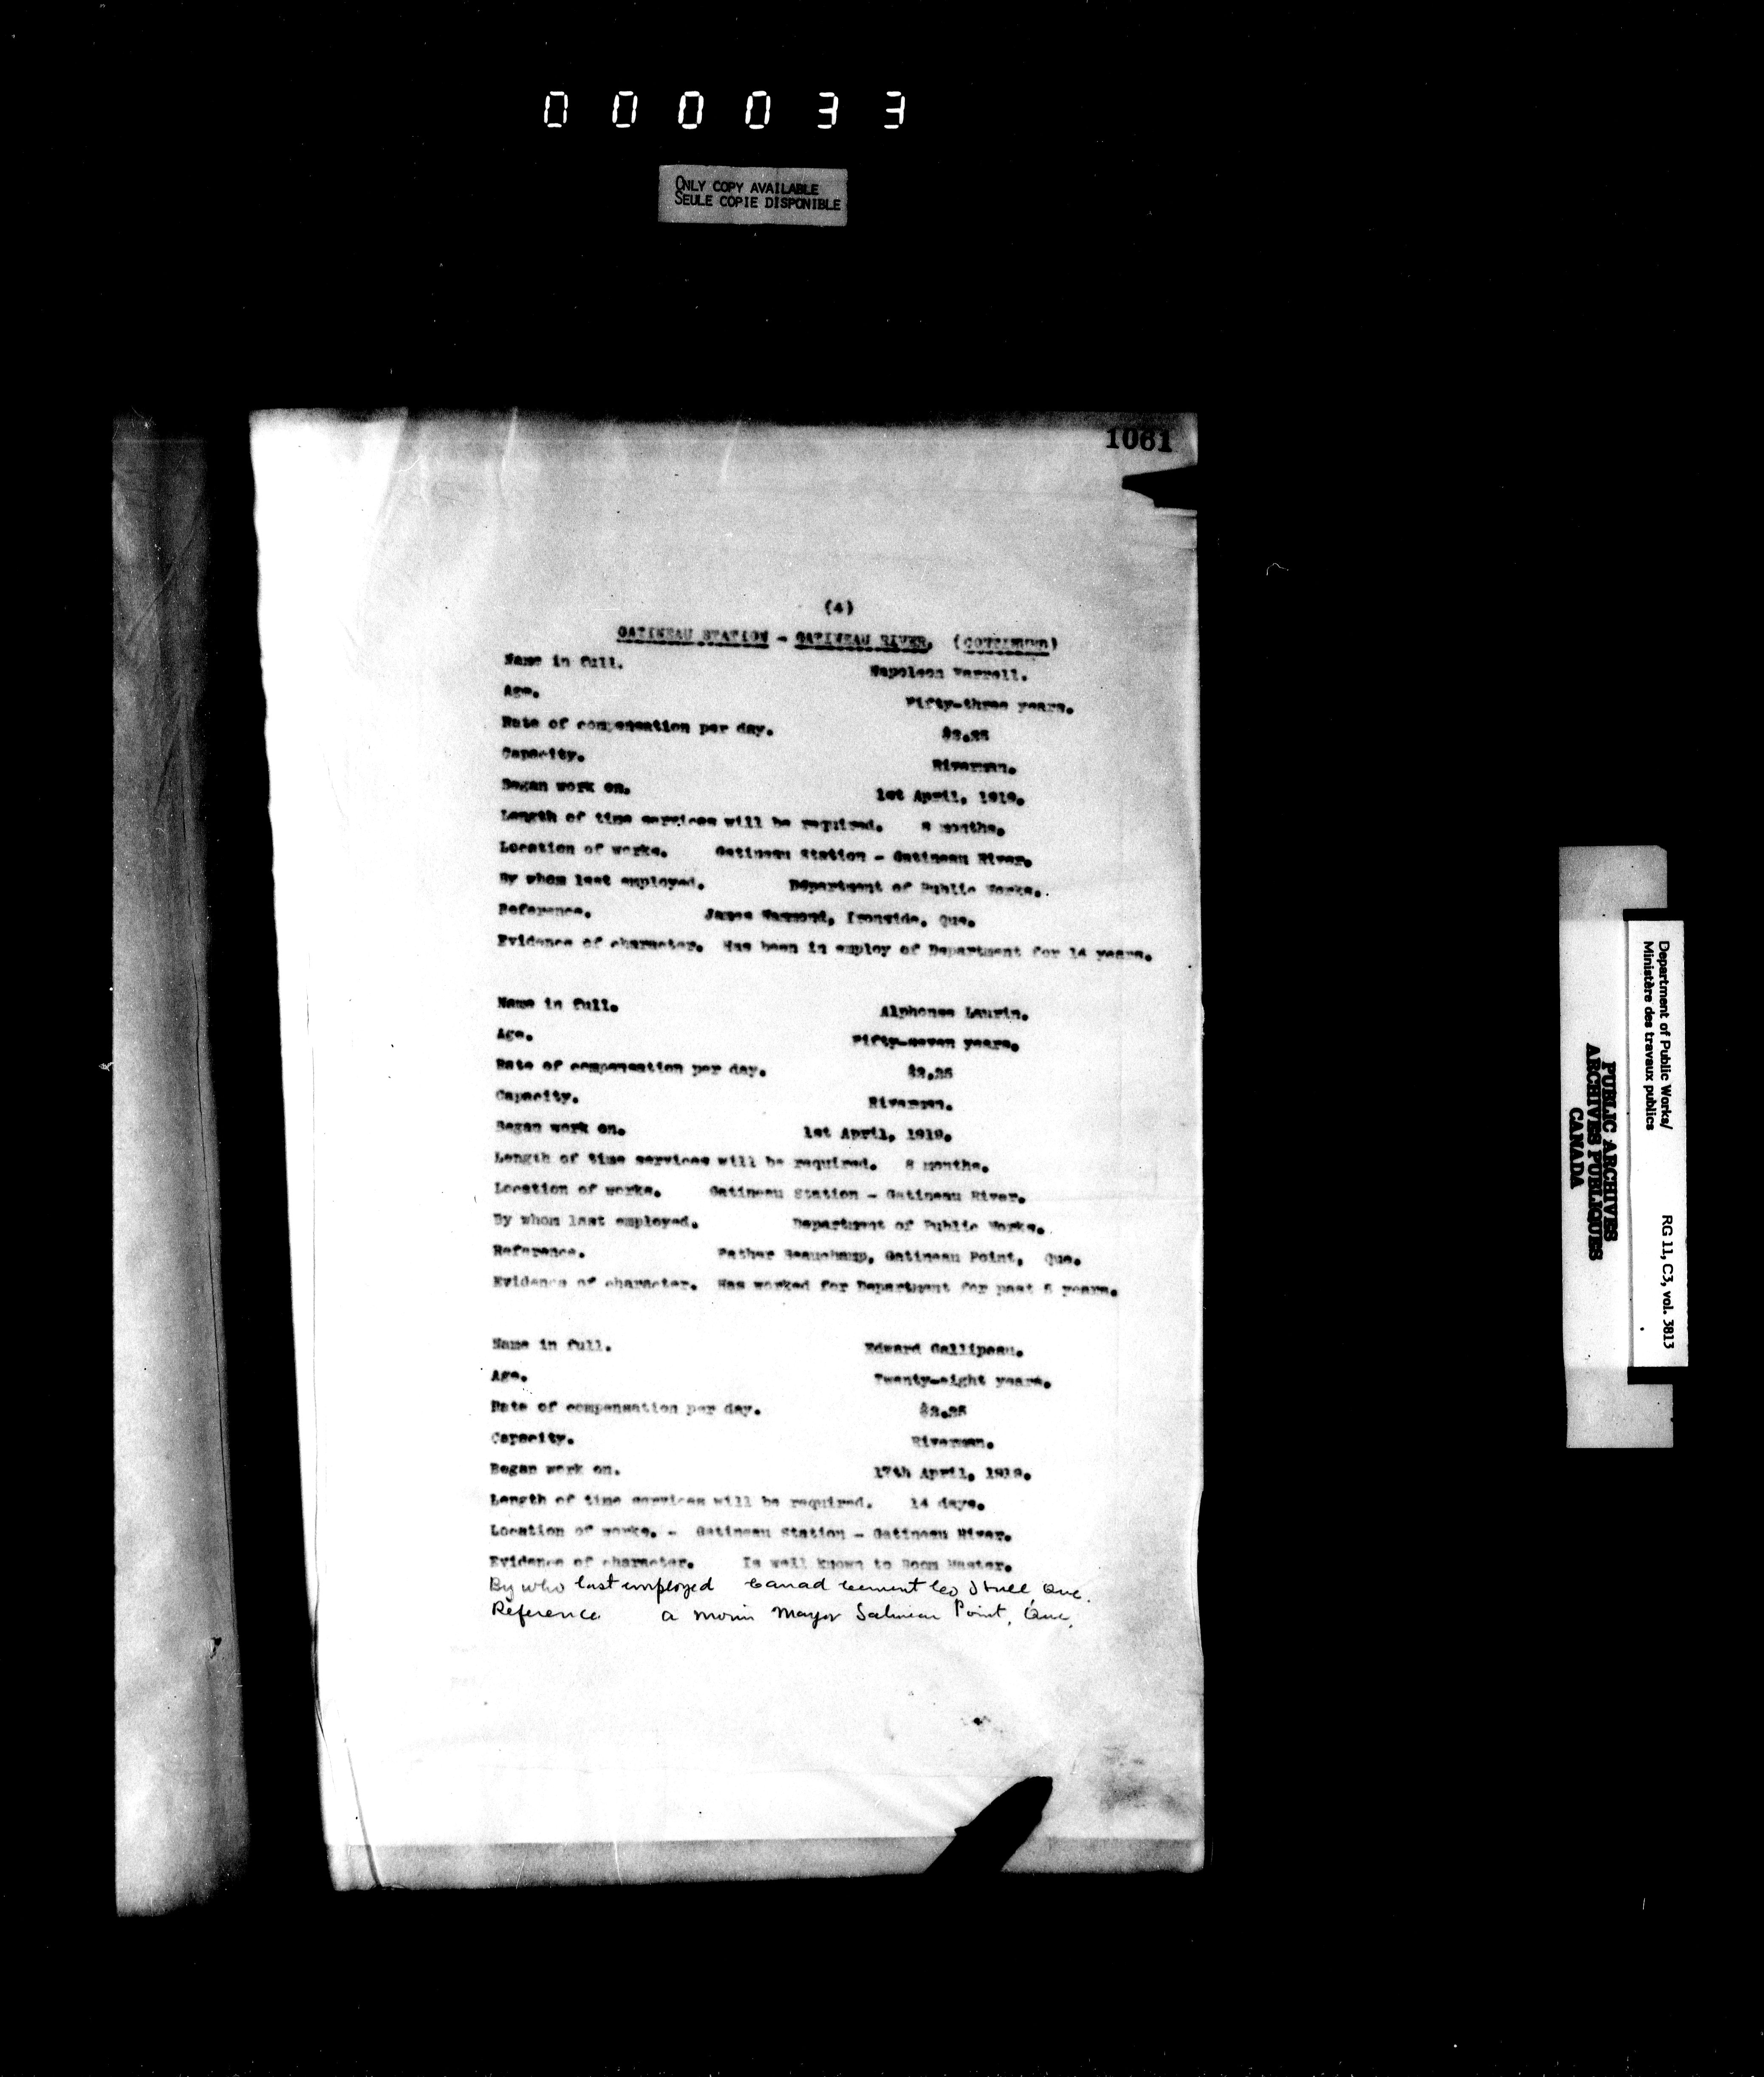 000033
ONLY COPY AVAILABLE
SEULE COPIE DISPONIBLE
1061
(4)
GATINEAU STATION - GATINEAU RIVER, (CONTINUED)
Name in full. Napoleon
Age. Fifty-three years.
Rate of compensation per day. $2.25
Capacity. Riverman.
Began work on. 1st April, 1919.
Length of time services will be required. 8 months.
Location of works. Gatineau Station - Gatineau River.
By whom last employed. Department of Public Works.
Reference. James Ironside, Que.
Evidence of character. Has been in employ of Department for 14 years.
Name in full. Alphonse Laurin.
Age. Fifty-seven years.
Rate of compensation per day. $2.25
Capacity. Riverman.
Began work on. 1st April, 1919.
Length of time services will be required. 8 months.
Location of works. Gatineau Station - Gatineau River.
By whom last employed. Department of Public Works.
Reference. Father Beauchamp, Gatineau Point, Que.
Evidence of character. Has worked for Department for past 5 years.
Name in full. Edward Gallipeau.
Age. Twenty-eight years.
Rate of compensation per day. $2.25
Capacity. Riverman.
Began work on. 17th April, 1919.
Length of time services will be required. 14 days.
Location of works. - Gatineau Station - Gatineau River.
Evidence of character. Is well known to Boom Master.
By who last employed Canad cement Co Hull Que.
Reference a Morin Mayor Point, Que.
Department of Public Works/
Ministère des travaux publics
RG 11, C3, vol. 3813
PUBLIC ARCHIVES
ARCHIVES PUBLIQUES
CANADA